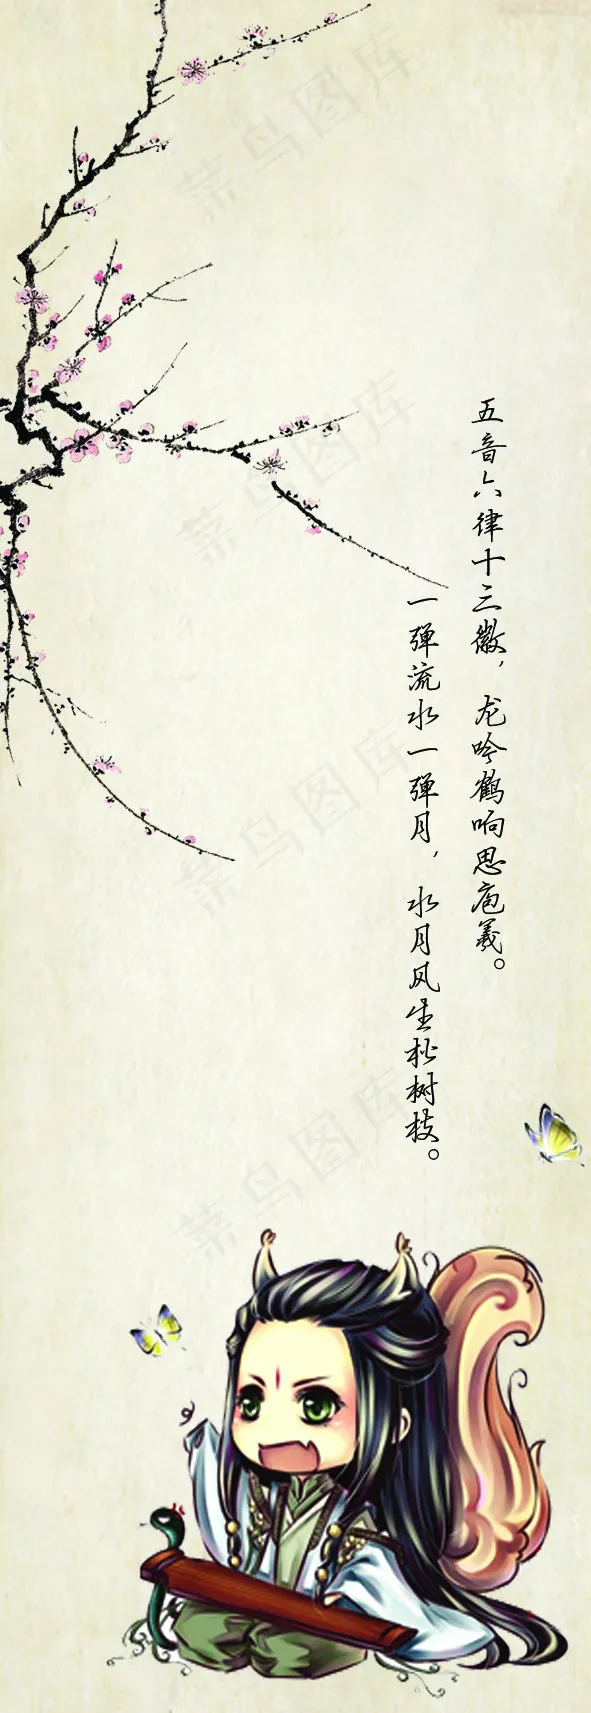 五音六律十三徽，龙吟鹤响思庖羲。
一弹流水一弹月，水月风生松树枝。
菜鸟图库
菜鸟图库
菜鸟图库
菜鸟图库